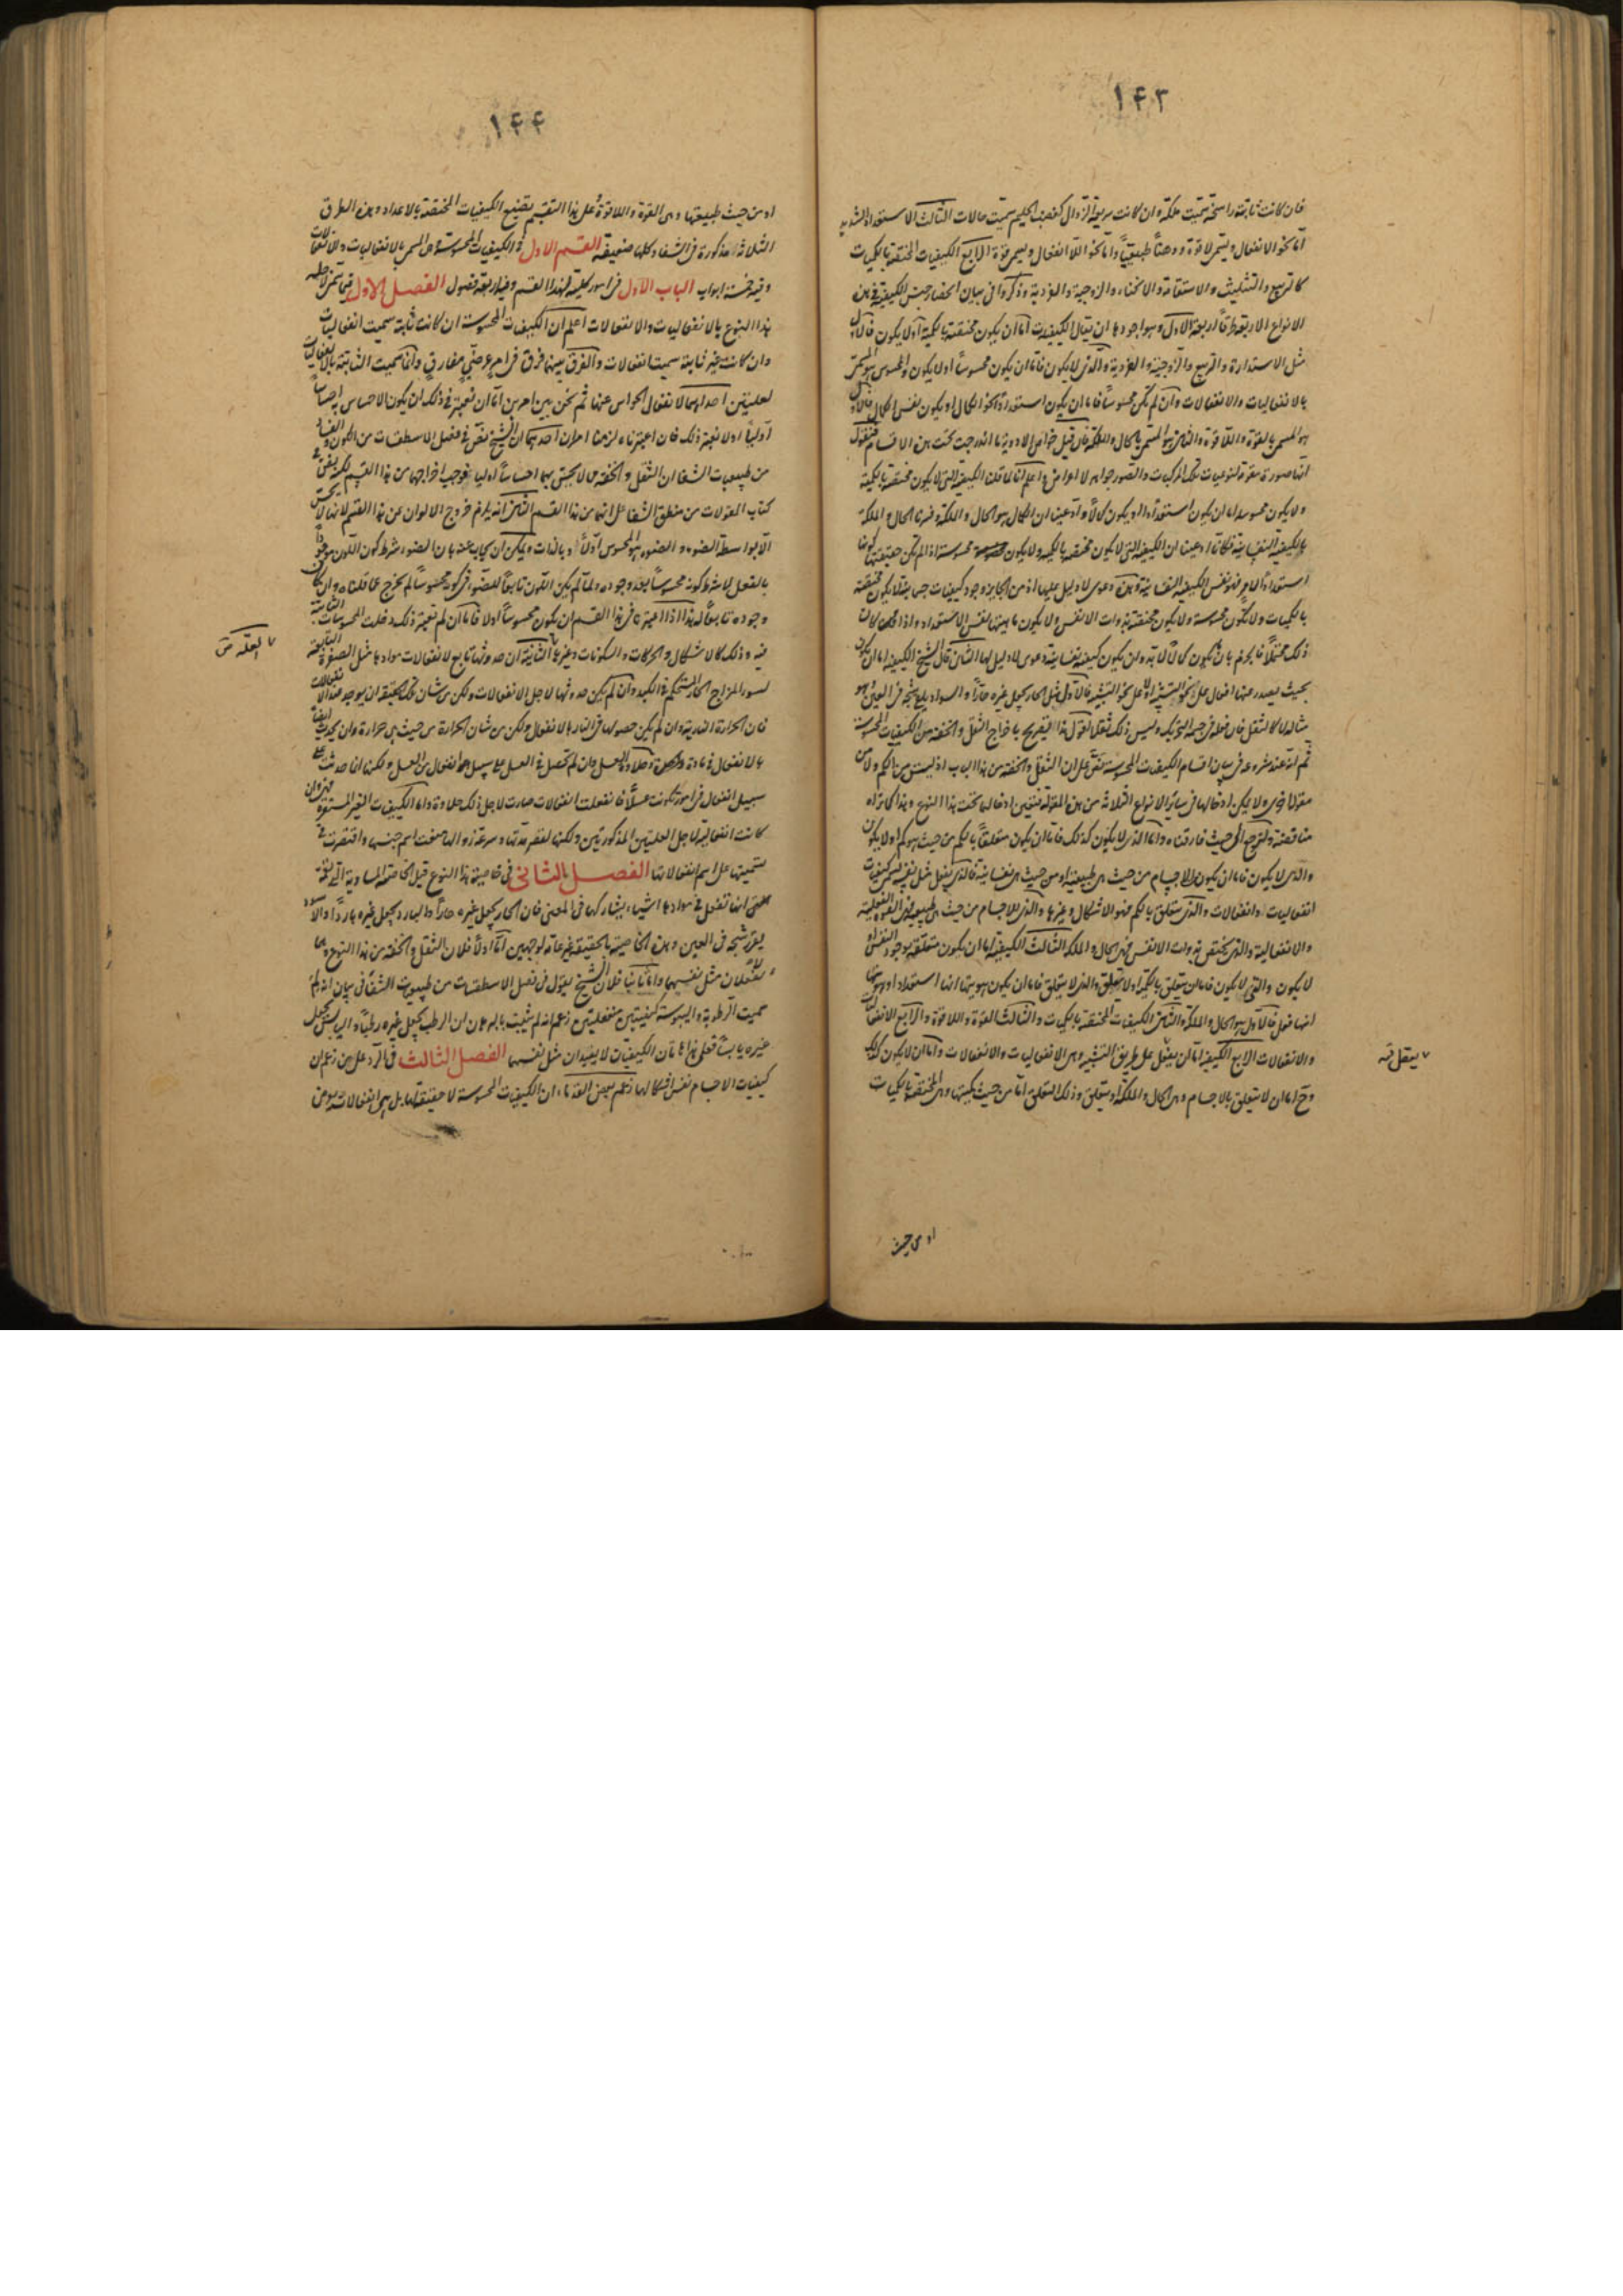 ١٤٣
فان كانت ثابتة راسخة سميت ملكة وان كانت سريعة الزوال كغضب الحليم سميت حالات الثالث الاستعداد الشديد
اما نحو الانفعال ويسمى لا قوة ووهنا طبيعيا واما نحو اللا انفعال ويسمى قوة الرابع الكيفيات المختصة بالكميات
كالتربيع والتثليث والاستقامة والانحناء والزوجية والفردية وذكروا في بيان انحصار جنس الكيفية في هذه
الانواع الاربعة طرقا اربعة الاول وهو اجودها ان يقال الكيفيات اما ان يكون مختصة بالكمية او لا يكون فالاول
مثل الاستدارة والتربيع والزوجية والفردية والذي لا يكون فاما ان يكون محسوسا او لا يكون والمحسوس هو المسمى
بالانفعاليات والانفعالات وان لم يكن محسوسا فاما ان يكون استعدادا نحو الكمال او يكون نفس الكمال فالاول
هو المسمى بالقوة واللا قوة والثاني هو المسمى بالحال والملكة فان قيل خواص الادوية ما اندرجت تحت هذه الاقسام فنقول
انها صورة مقومة لنوعيات تلك المركبات والصور جواهر لا اعراض واعلم انا لما قلنا الكيفية التي لا يكون مختصة بالكمية
ولا يكون محسوسة اما ان يكون استعدادا او يكون كمالا وادعينا ان الكمال هو الحال والملكة وفسرنا الحال والملكة
بالكيفية النفسانية فكانا ادعينا ان الكيفية التي لا يكون مختصة بالكمية ولا يكون محسوسة اذا لم يكن حقيقتها كونها
استعدادا لامر فهو نفس الكيفية النفسانية وهذه دعوى لا دليل عليها اذ من الجايز وجود كيفيات جسمانية لا يكون مختصة
بالكميات ولا تكون محسوسة ولا يكون مختصة بذوات الانفس ولا يكون ماهيتها نفس الاستعداد واذا كان
ذلك محتملا فالجزم بان يكون كمالا لابد وان يكون كيفية نفسانية دعوى لا دليل لها الثاني قال الشيخ الكيفية اما ان يكون
بحيث يصدر عنها افعال على نحو التشبيه او لا على نحو التشبيه فالاول مثل الحار يجعل غيره حارا والسواد يلقى شبحه في العين وهو
مثاله لا كالثقل فان فعله في جسمه التحريك وليس ذلك ثقلا نقول هذا تصريح باخراج الثقل والخفة من الكيفيات المحسوسة
ثم انه عند شروعه في بيان اقسام الكيفيات المحسوسة نص على ان الثقل والخفة من هذا الباب اذ ليست من الكم ولا من
مقولة اخرى ولا يمكن ادخالها في سائر الانواع الثلاثة من هذه المقولة فتعين ادخالها تحت هذا النوع وهذا كما تراه
مناقضة ولنرجع الى حيث فارقناه واما الذي لا يكون كذلك فاما ان يكون متعلقا بالكم من حيث هو كم او لا يكون
والذي لا يكون فاما ان يكون للاجسام من حيث هي طبيعية او من حيث هي نفسانية فالذي يفعل مثل نفسه ليسمى كيفيات
انفعاليات وانفعالات والذي يتعلق بالكم فهو الاشكال وغيرها والذي للاجسام من حيث هي طبيعية فهي القوة الفعلية
والانفعالية والذي يختص بذوات الانفس فهي الحال والملكة الثالث الكيفية اما ان يكون متعلقة بوجود النفس او
لا يكون والتي لا يكون فاما ان يتعلق بالكمية او لا يتعلق والذي لا يتعلق فاما ان يكون هويتها انها استعداد او هويتها
انها فعل فالاول هو الحال والملكة والثاني الكيفيات المختصة بالكميات والثالث القوة واللا قوة والرابع الانفعاليات
والانفعالات الرابع الكيفية اما ان يفعل على طريق التشبيه وهي الانفعاليات والانفعالات واما ان لا يكون كذلك
وح اما ان لا يتعلق بالاجسام وهي الحال والملكة او يتعلق وذلك التعلق اما من حيث كميتها وهي المختصة بالكميات
او من حيث
١٤٤
او من حيث طبيعتها وهي القوة واللا قوة وعلى هذا التقسيم يضيع الكيفيات المختصة بالاعداد وهذه الطرق
الثلاثة مذكورة في الشفاء وكلها ضعيفة القسم الاول في الكيفيات المحسوسة وهي المسمى بالانفعاليات والانفعالات
وفيه خمسة ابواب الباب الاول في امور كلية لهذا القسم وفيه اربعة فصول الفصل الاول في تسمى جملة
هذا النوع بالانفعاليات والانفعالات اعلم ان الكيفيات المحسوسة ان كانت ثابتة سميت انفعاليات
وان كانت غير ثابتة سميت انفعالات والفرق بينهما فرق في امر عرضي مفارق وانما سميت الثابتة بالانفعاليات
لعلتين احداهما لانفعال الحواس عنها ثم نحن بين امرين اما ان نعتبر في ذلك ان يكون الاحساس احساسا
اوليا او لا نعتبر ذلك فان اعتبرناه لزمنا امران احدهما ان الشيخ نص في فصل الاسطقسات من الكون والفساد
من طبيعيات الشفا ان الثقل والخفة مما لا يحس بهما احساسا اوليا فوجب اخراجهما من هذا القسم لكنه نص في
كتاب المقولات من منطق الشفا على انهما من هذا القسم الثاني انه يلزم خروج الالوان عن هذا القسم لانها لا تحس
الا بواسطة الضوء والضوء هو المحسوس اولا وبالذات ويمكن ان يجاب عنه بان الضوء شرط كون اللون موجودا
بالفعل لا شرط كونه محسوسا بعد وجوده ولما لم يكن اللون تابعا للضوء في كونه محسوسا لم يخرج عما قلناه وان كان
وجوده تابعا له هذا اذا اعتبرنا في هذا القسم ان يكون محسوسا اولا فاما ان لم نعتبر ذلك دخلت المحسوسات الثانية
فيه وذلك كالاشكال والحركات والسكونات وغيرها الثانية ان حدوثها تابع لانفعالات موادها مثل الصفرة التابعة
لسوء المزاج الحار المستحكم في الكبد وان لم يكن حدوثها لاجل الانفعالات ولكن من شان تلك الحقيقة ان يوجد عند الانفعالات
فان الحرارة النارية وان لم يكن حصولها في النار بالانفعال ولكن من شان الحرارة من حيث هي حرارة وان يحدث ايضا
بالانفعال في مادة وكحلاوة العسل وان لم تحصل في العسل على سبيل انفعال من العسل ولكنها انما حدثت على
سبيل انفعال في امور تكونت عسلا فانفعلت انفعالات صارت لاجل ذلك حلاوة واما الكيفيات الغير المستقرة فهي وان
كانت انفعالية لاجل العلتين المذكورتين ولكنها لقصر مدتها وسرعة زوالها منعت اسم جنسها واقتصرت في
تسميتها على اسم انفعالاتها الفصل الثاني في خاصية هذا النوع قيل الخاصة المساوية التي لهذه
هي انها تفعل في موادها اشياء يشاركها في المعنى فان الحار يجعل غيره حارا والبارد يجعل غيره باردا والاسود
يلقى شبحه في العين وهذه الخاصية بالحقيقة غير عامة لوجهين اما اولا فلان الثقل والخفة من هذا النوع وهما
لا يفعلان مثل نفسهما واما ثانيا فلان الشيخ يقول في فصل الاسطقسات من طبيعيات الشفا في بيان انه لم
سميت الرطوبة واليبوسة كيفيتين منفعلتين زعم انه لم يثبت بالبرهان ان الرطب يجعل غيره رطبا واليابس يجعل
غيره يابسا فعلى هذا هاتان الكيفيتان لا يفيدان مثل نفسهما الفصل الثالث في الرد على من زعم ان
كيفيات الاجسام نفس اشكالها زعم بعض القدماء ان الكيفيات المحسوسة لا حقيقة لها بل هي انفعالات يعرض